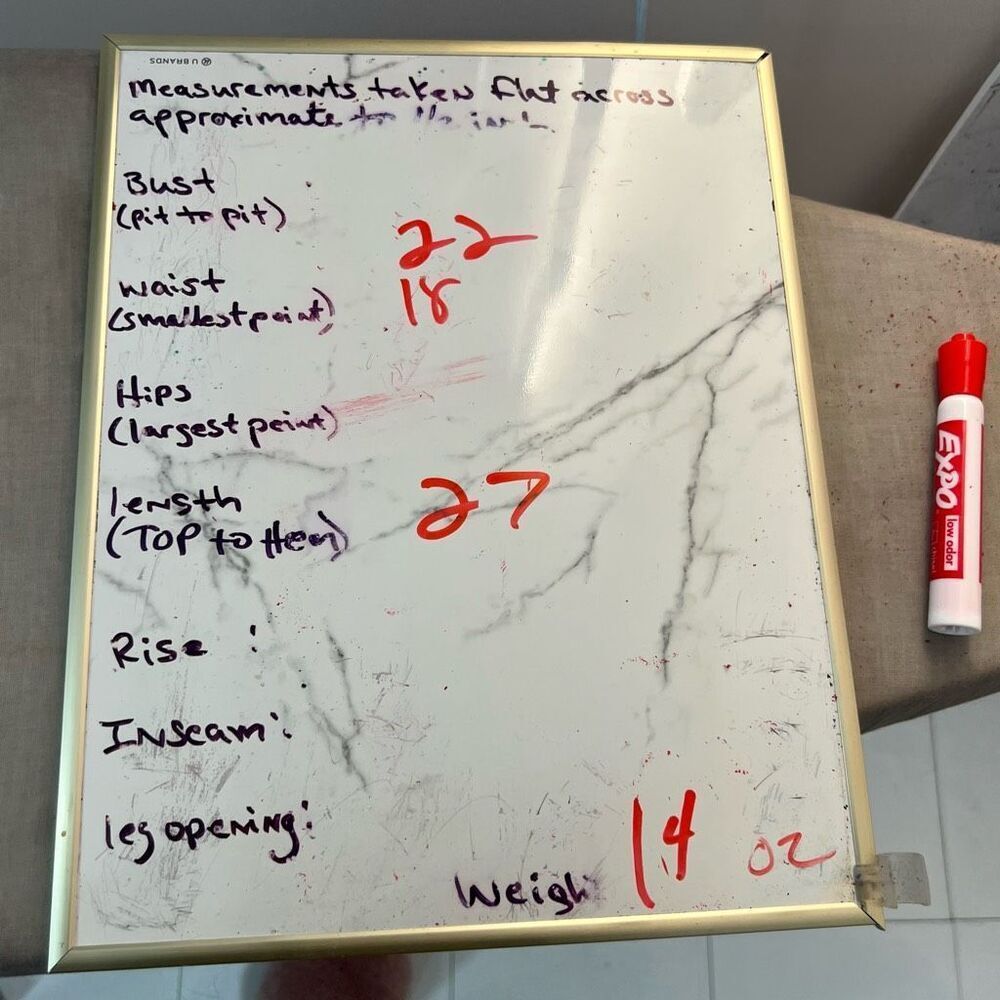 U BRANDS
Measurements taken flat across
approximate to the inch
Bust
(pit to pit) 22
waist 18
(smallest point)
Hips
(largest point)
length 27
(TOP to Hem)
Rise :
Inseam:
leg opening:
Weigh 14 oz
EXPO
low odor